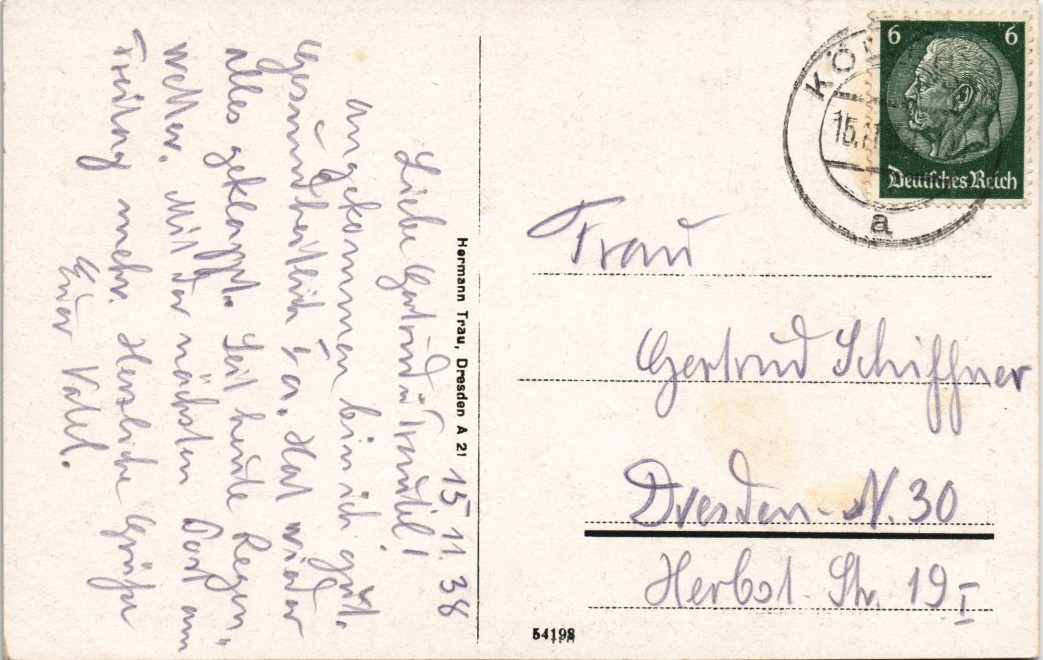 15.11.38
Liebe Gertrud u. Traudel!
angekommen bin ich gut.
Gesundheitlich Ia. Hat wieder
alles geklappt. Seit heute Regen-
wetter. Mit der nächsten Post am
Freitag mehr. Herzliche Grüße
Euer Vatel.
Hermann Trau, Dresden A 21
6 6
Deutsches Reich
15.11
a
Frau
Gertrud Schiffner
Dresden-N. 30
Herbst. Str. 19 I
54198